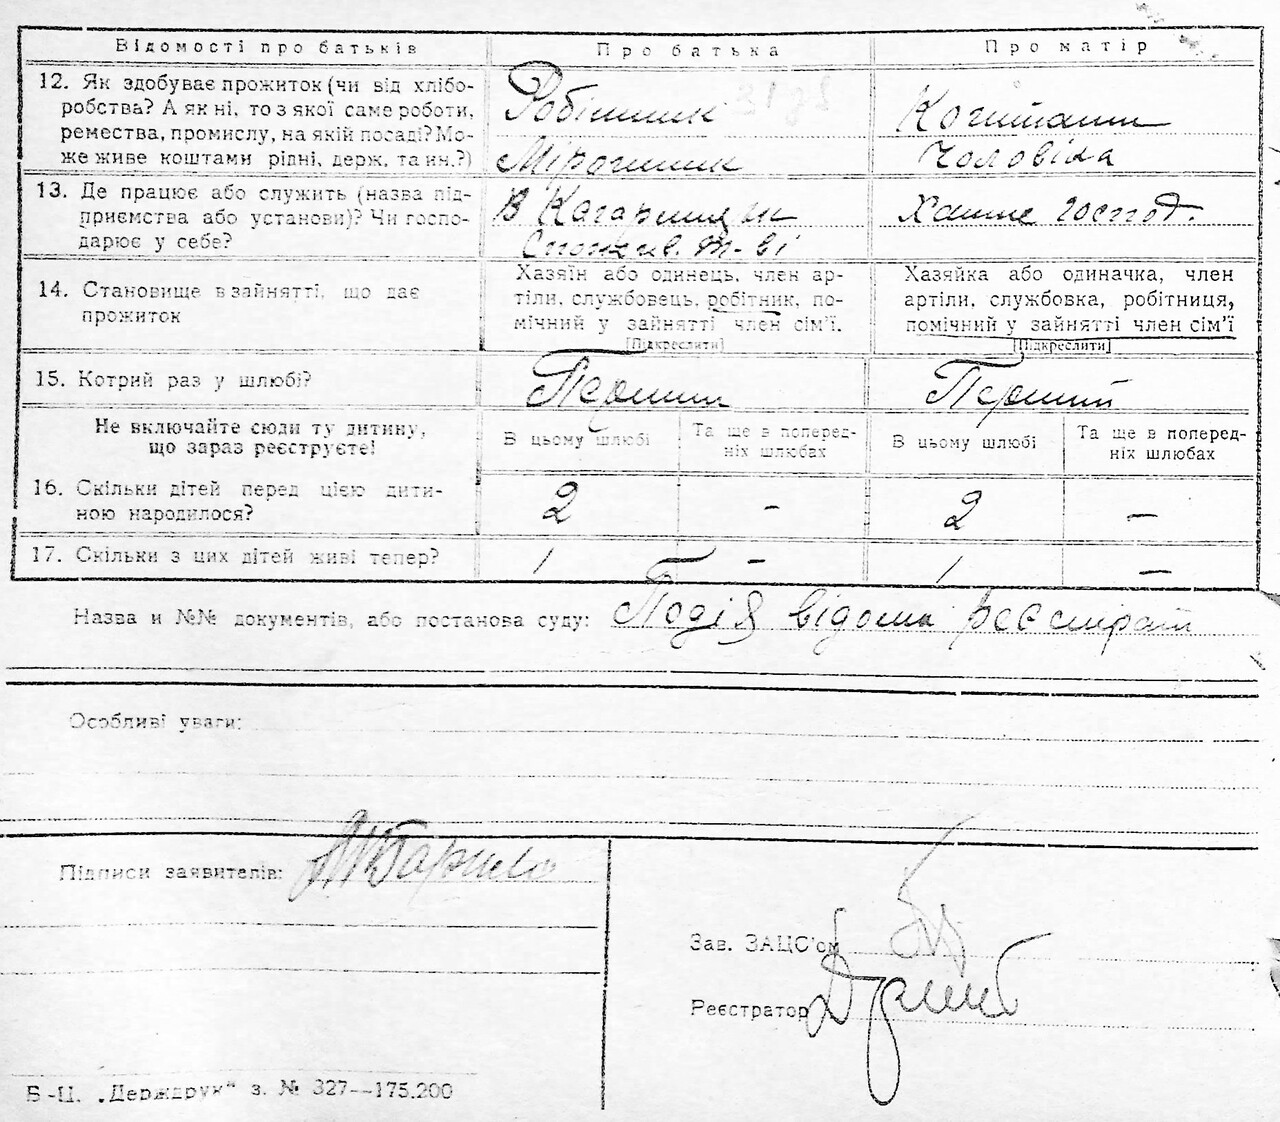 Відомості про батьків Про батька Про матір
12. Як здобуває прожиток (чи від хлібо-
робства? А як ні, то з якої саме роботи,
ремества, промислу, на якій посаді? Мо-
же живе коштами рідні, держ. та ин.?)
Робітник
Мірошник
Коштами
Чоловіка
13. Де працює або служить (назва під-
приємства або установи)? Чи госпо-
дарює у себе?
В Кагарлицьк
Спожив. т-ві
Хатнє господ.
14. Становище в зайнятті, що дає
прожиток
Хазяїн або одинець, член ар-
тіли, службовець, робітник, по-
мічний у зайнятті член сім'ї.
[Підкреслити]
Хазяйка або одиначка, член
артіли, службовка, робітниця,
помічний у зайнятті член сім'ї
[Підкреслити]
15. Котрий раз у шлюбі? Перший Перший
Не включайте сюди ту дитину,
що зараз реєструєте!
В цьому шлюбі
Та ще в поперед-
ніх шлюбах
В цьому шлюбі
Та ще в поперед-
ніх шлюбах
16. Скільки дітей перед цією дити-
ною народилося?
2 - 2 —
17. Скільки з цих дітей живі тепер? 1 - 1 —
Назва и №№ документів, або постанова суду: Подія відома реєстрат
Особливі уваги:
Підписи заявителів:
Зав. ЗАЦС'ом
Реєстратор
Б-Ц. „Держдрук" з. № 327—175.200